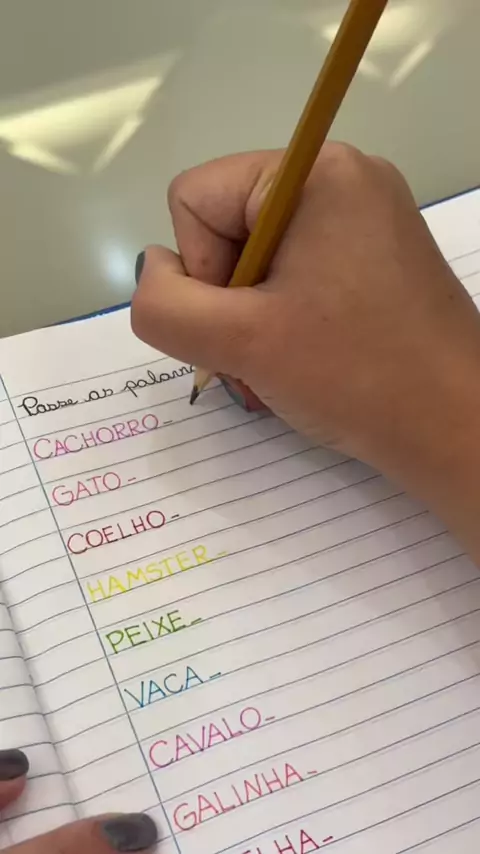 Passe as
CACHORRO-
GATO-
COELHO-
HAMSTER-
PEIXE-
VACA-
CAVALO-
GALINHA-